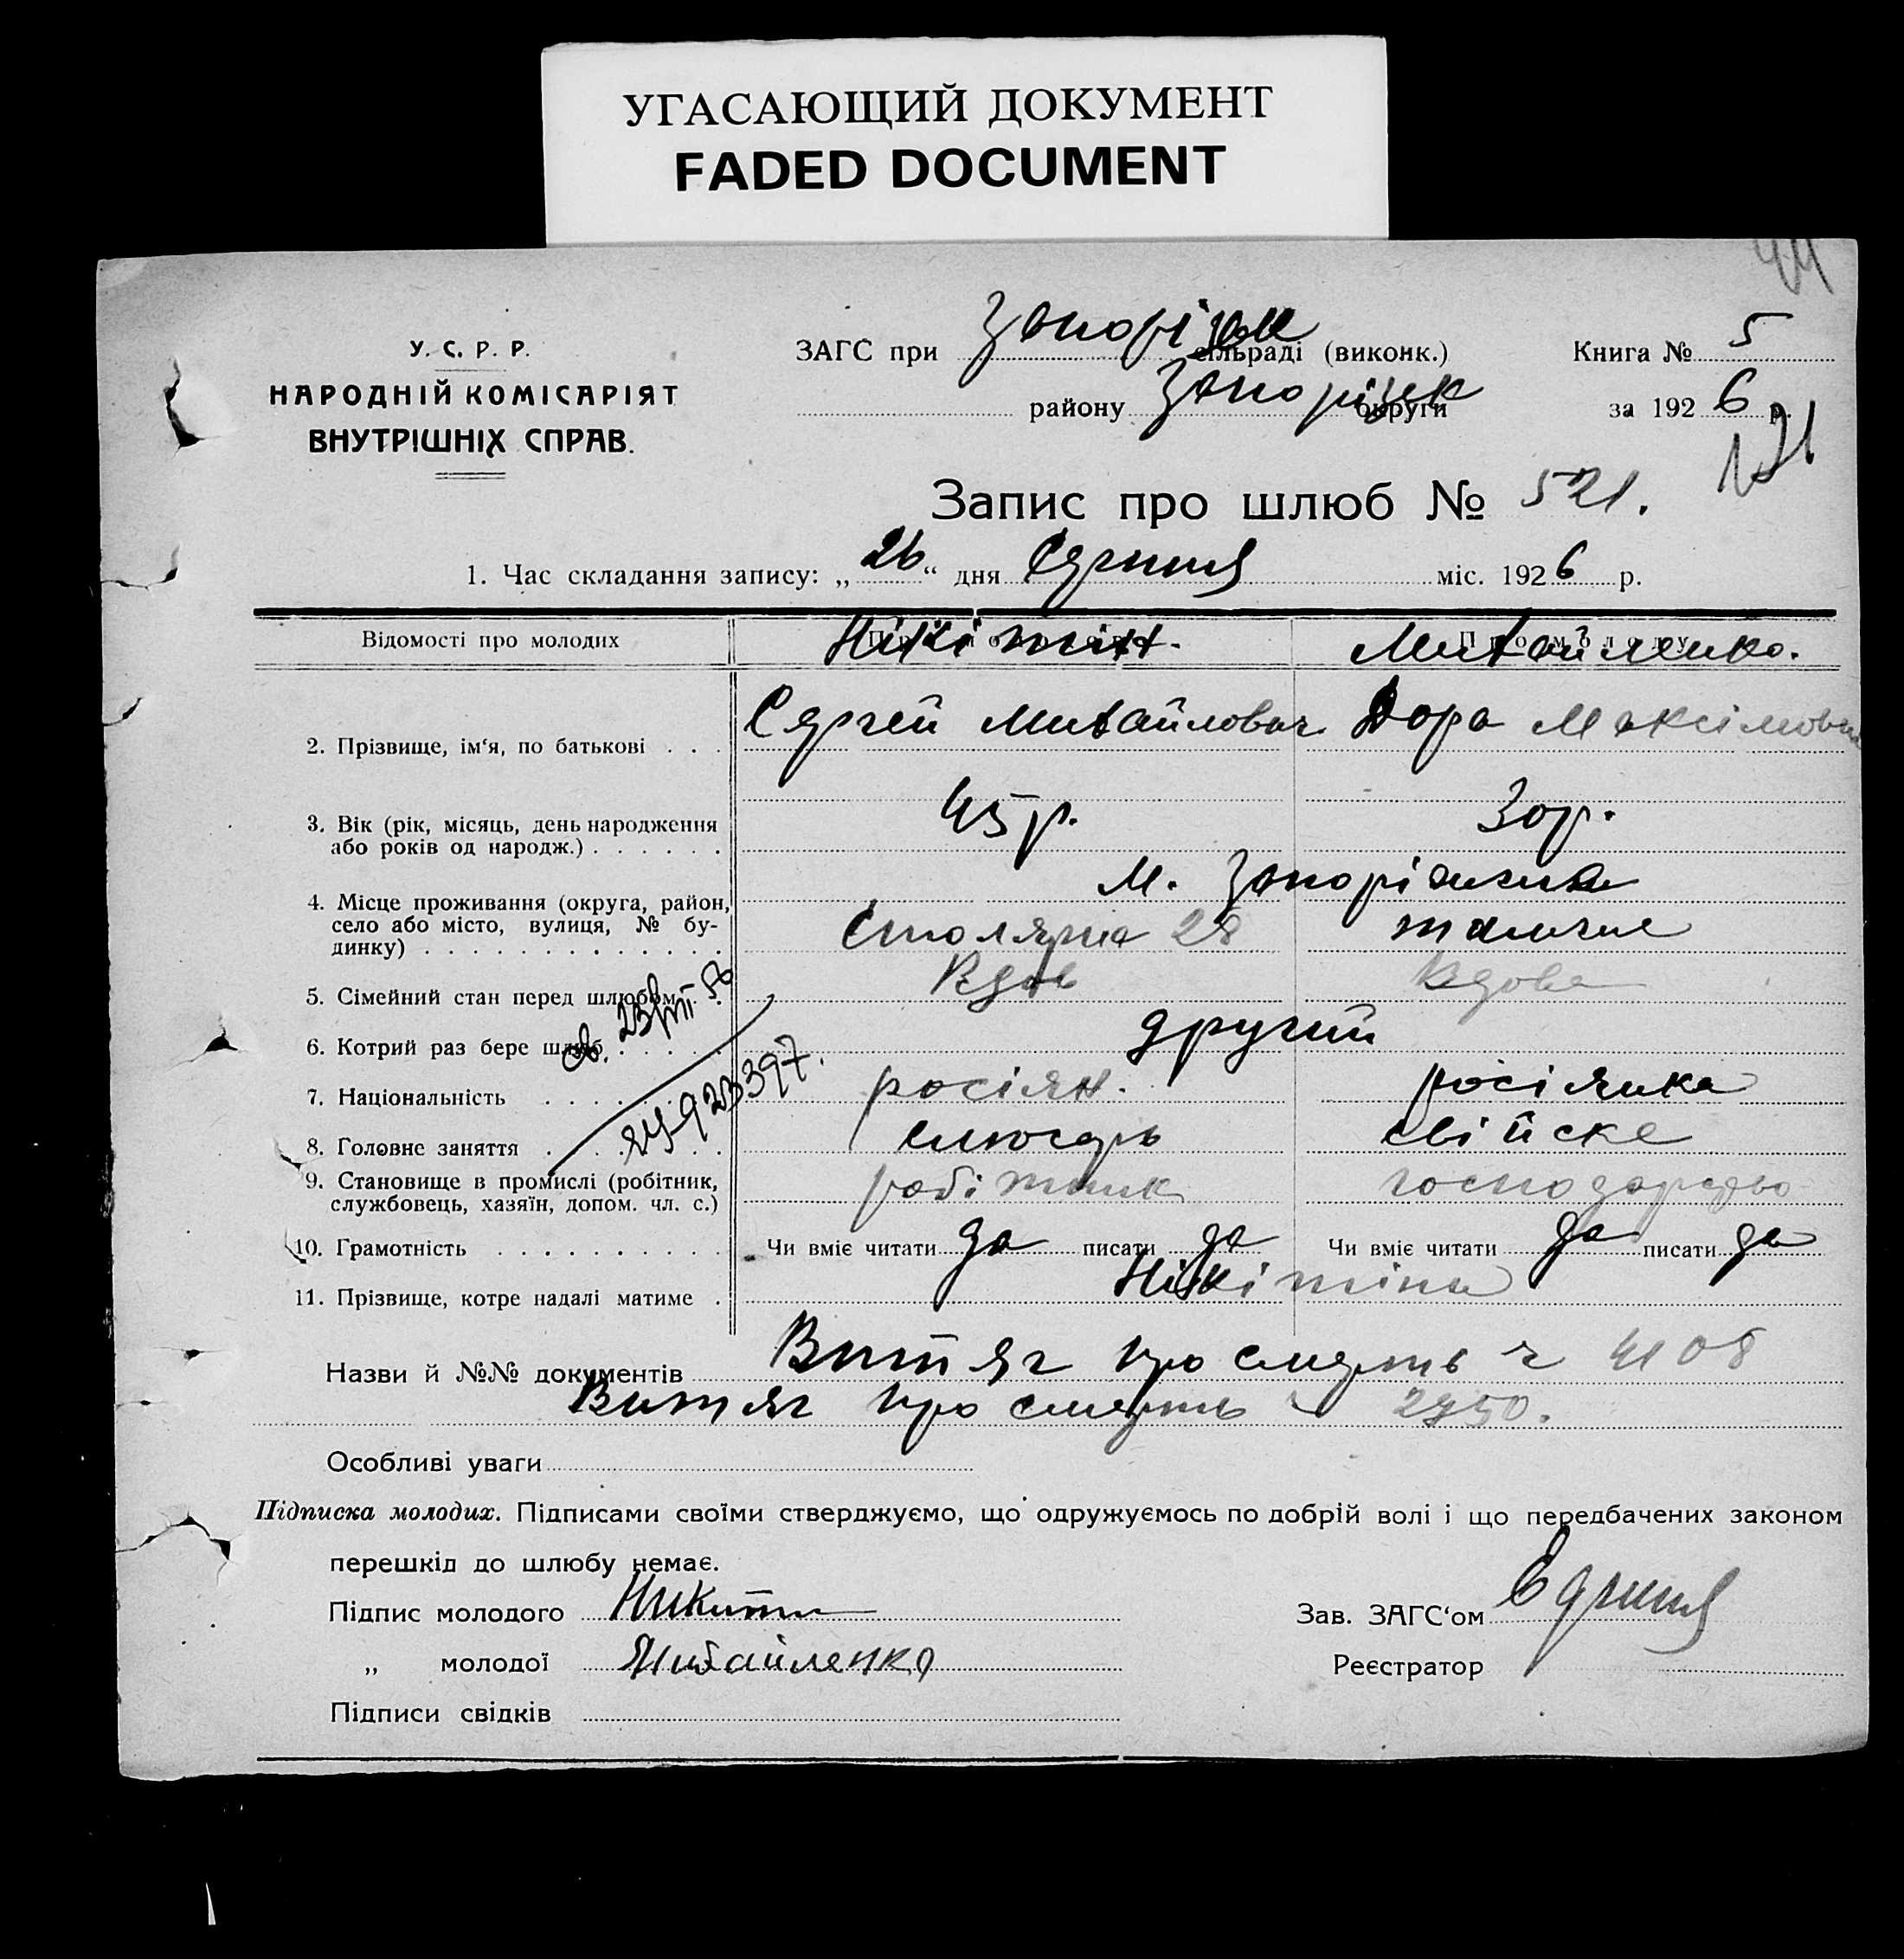 УГАСАЮЩИЙ ДОКУМЕНТ
FADED DOCUMENT
У. С. Р. Р.
НАРОДНІЙ КОМІСАРІЯТ
ВНУТРІШНІХ СПРАВ.
ЗАГС при сільраді (виконк.)
району Запорізьк округи
Книга № 5
за 1926 р.
Запис про шлюб № 521.
1. Час складання запису: „26“ дня Серпня міс. 1926 р.
Відомості про молодих
Нікітін. Михайленко.
2. Прізвище, ім‘я, по батькові . . . Сергей Михайлович Дора Максімовна
3. Вік (рік, місяць, день народження
або років од народж.) . . . . . . 45 р. 30 р.
4. Місце проживання (округа, район,
село або місто, вулиця, № бу-
динку) . . . . . . . . . . . . .
М. Запоріжжя
Столярна 28
5. Сімейний стан перед шлюбом . . Вдов Вдова
6. Котрий раз бере шлюб . . . . . другий
св. 23/VIII 56
923397.
7. Національність . . . . . . . . росіян. росіянка
8. Головне заняття . . . . . . . . слюсарь свійске
9. Становище в промислі (робітник,
службовець, хазяїн, допом. чл. с.) робітник господарство
10. Грамотність . . . . . . . . . . Чи вміє читати да писати да Чи вміє читати да писати да
11. Прізвище, котре надалі матиме . Нікітіни
Назви й №№ документів Витяг про смерть ч 4108
Витяг про смерть ч
Особливі уваги
Підписка молодих. Підписами своїми стверджуємо, що одружуємось по добрій волі і що передбачених законом
перешкід до шлюбу немає.
Підпис молодого Никитин
„ молодої Михайленко
Підписи свідків
Зав. ЗАГС‘ом
Реєстратор